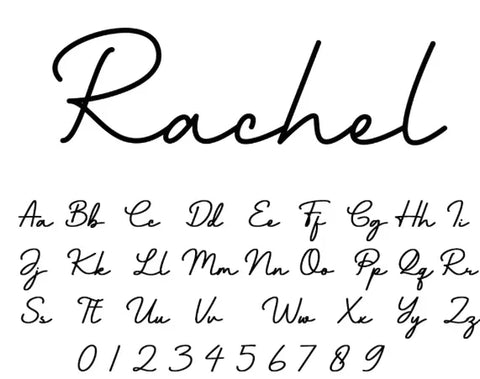 Rachel
Aa Bb Cc Dd Ee Ff Gg Hh Ii
Jj Kk Ll Mm Nn Oo Pp Qq Rr
Ss Tt Uu Vv Ww Xx Yy Zz
0 1 2 3 4 5 6 7 8 9